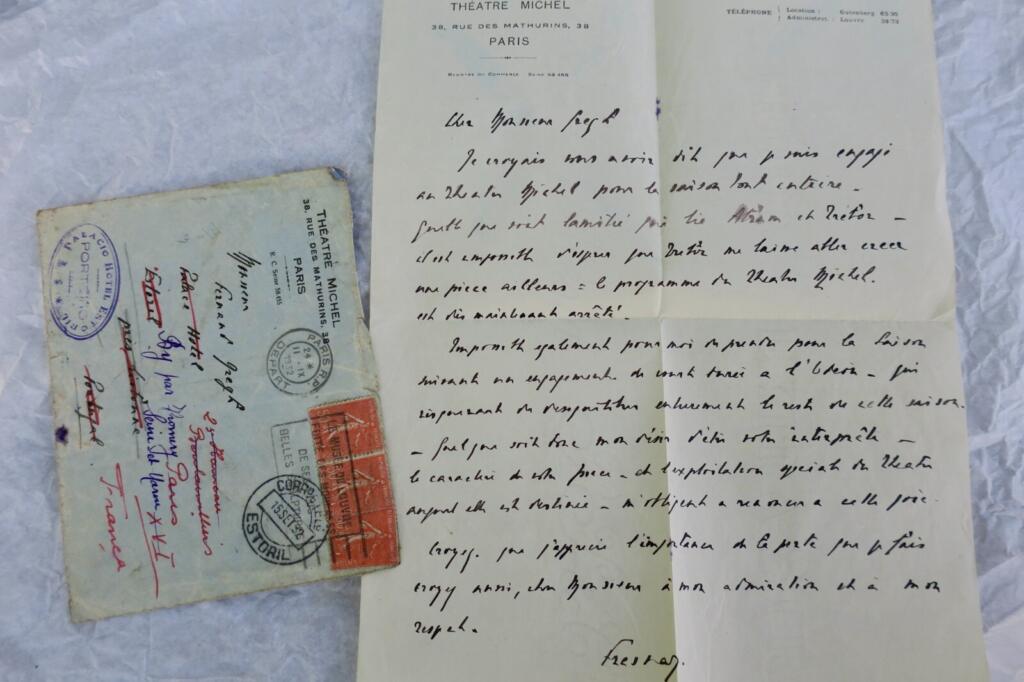 THÉATRE MICHEL
38, RUE DES MATHURINS, 38
PARIS
REGISTRE DU COMMERCE SEINE
TÉLÉPHONE
Location : Gutenberg 63-30
Administrat. : Louvre
Cher Monsieur Gregh
Je croyais vous avoir dit que je suis engagé
au Theatre Michel pour la saison tout entière -
Quelle que soit l'amitié qui lie et Trébor -
il est impossible d'espérer que Trébor me laisse aller créer
une piece ailleurs = le programme du Theatre Michel.
est dès maintenant arrêté.
Impossible egalement pour moi de prendre pour la Saison
suivant un engagement de courte durée a l'Odeon - qui
risquerait de desequilibrer entierement le reste de cette saison.
- Quel que soit donc mon désir d'être votre interprète -
le caractère de votre piece - et l'exploitation speciale du Theatre
auquel elle est destinée - m'obligent a renoncer a cette joie.
Croyez que j'apprecie l'importance de la perte que je fais
croyez aussi, cher Monsieur à mon admiration et à mon
respect.
Fresnay.
THÉATRE MICHEL
38, RUE DES MATHURINS, 38
PARIS
R. C. Seine
Monsieur
Fernand Gregh
Palace Hotel
Estoril
près Lisbonne
Portugal
Boulainvilliers
Paris
XVI
By par Thomery
Seine et Marne
França
PALACIO HOTEL ESTORIL
PORTUGAL
PARIS R.P.
DEPART
11 IX
1932
DE SES
BELLES
CORREIOS
15 SET 32
ESTORIL